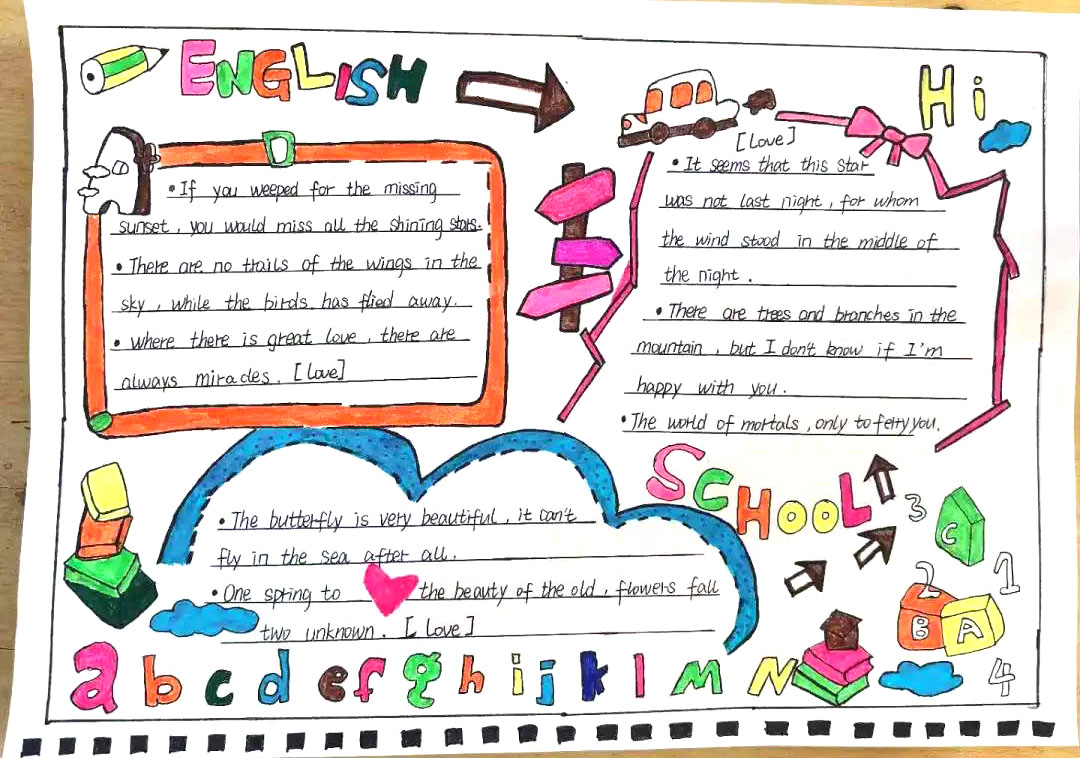 ENGLISH
Hi
• If you weeped for the missing
sunset, you would miss all the shining stars.
• There are no trails of the wings in the
sky, while the birds has flied away.
• where there is great love, there are
always miracles. [love]
[Love]
• It seems that this star
was not last night, for whom
the wind stood in the middle of
the night.
• There are trees and branches in the
mountain, but I don't know if I'm
happy with you.
• The world of mortals, only to you.
SCHOOL
• The butterfly is very beautiful, it can't
fly in the sea after all.
• One spring to the beauty of the old, flowers fall
two unknown. [Love]
3
C
2
1
B A
4
a b c d e f g h i j k l M N